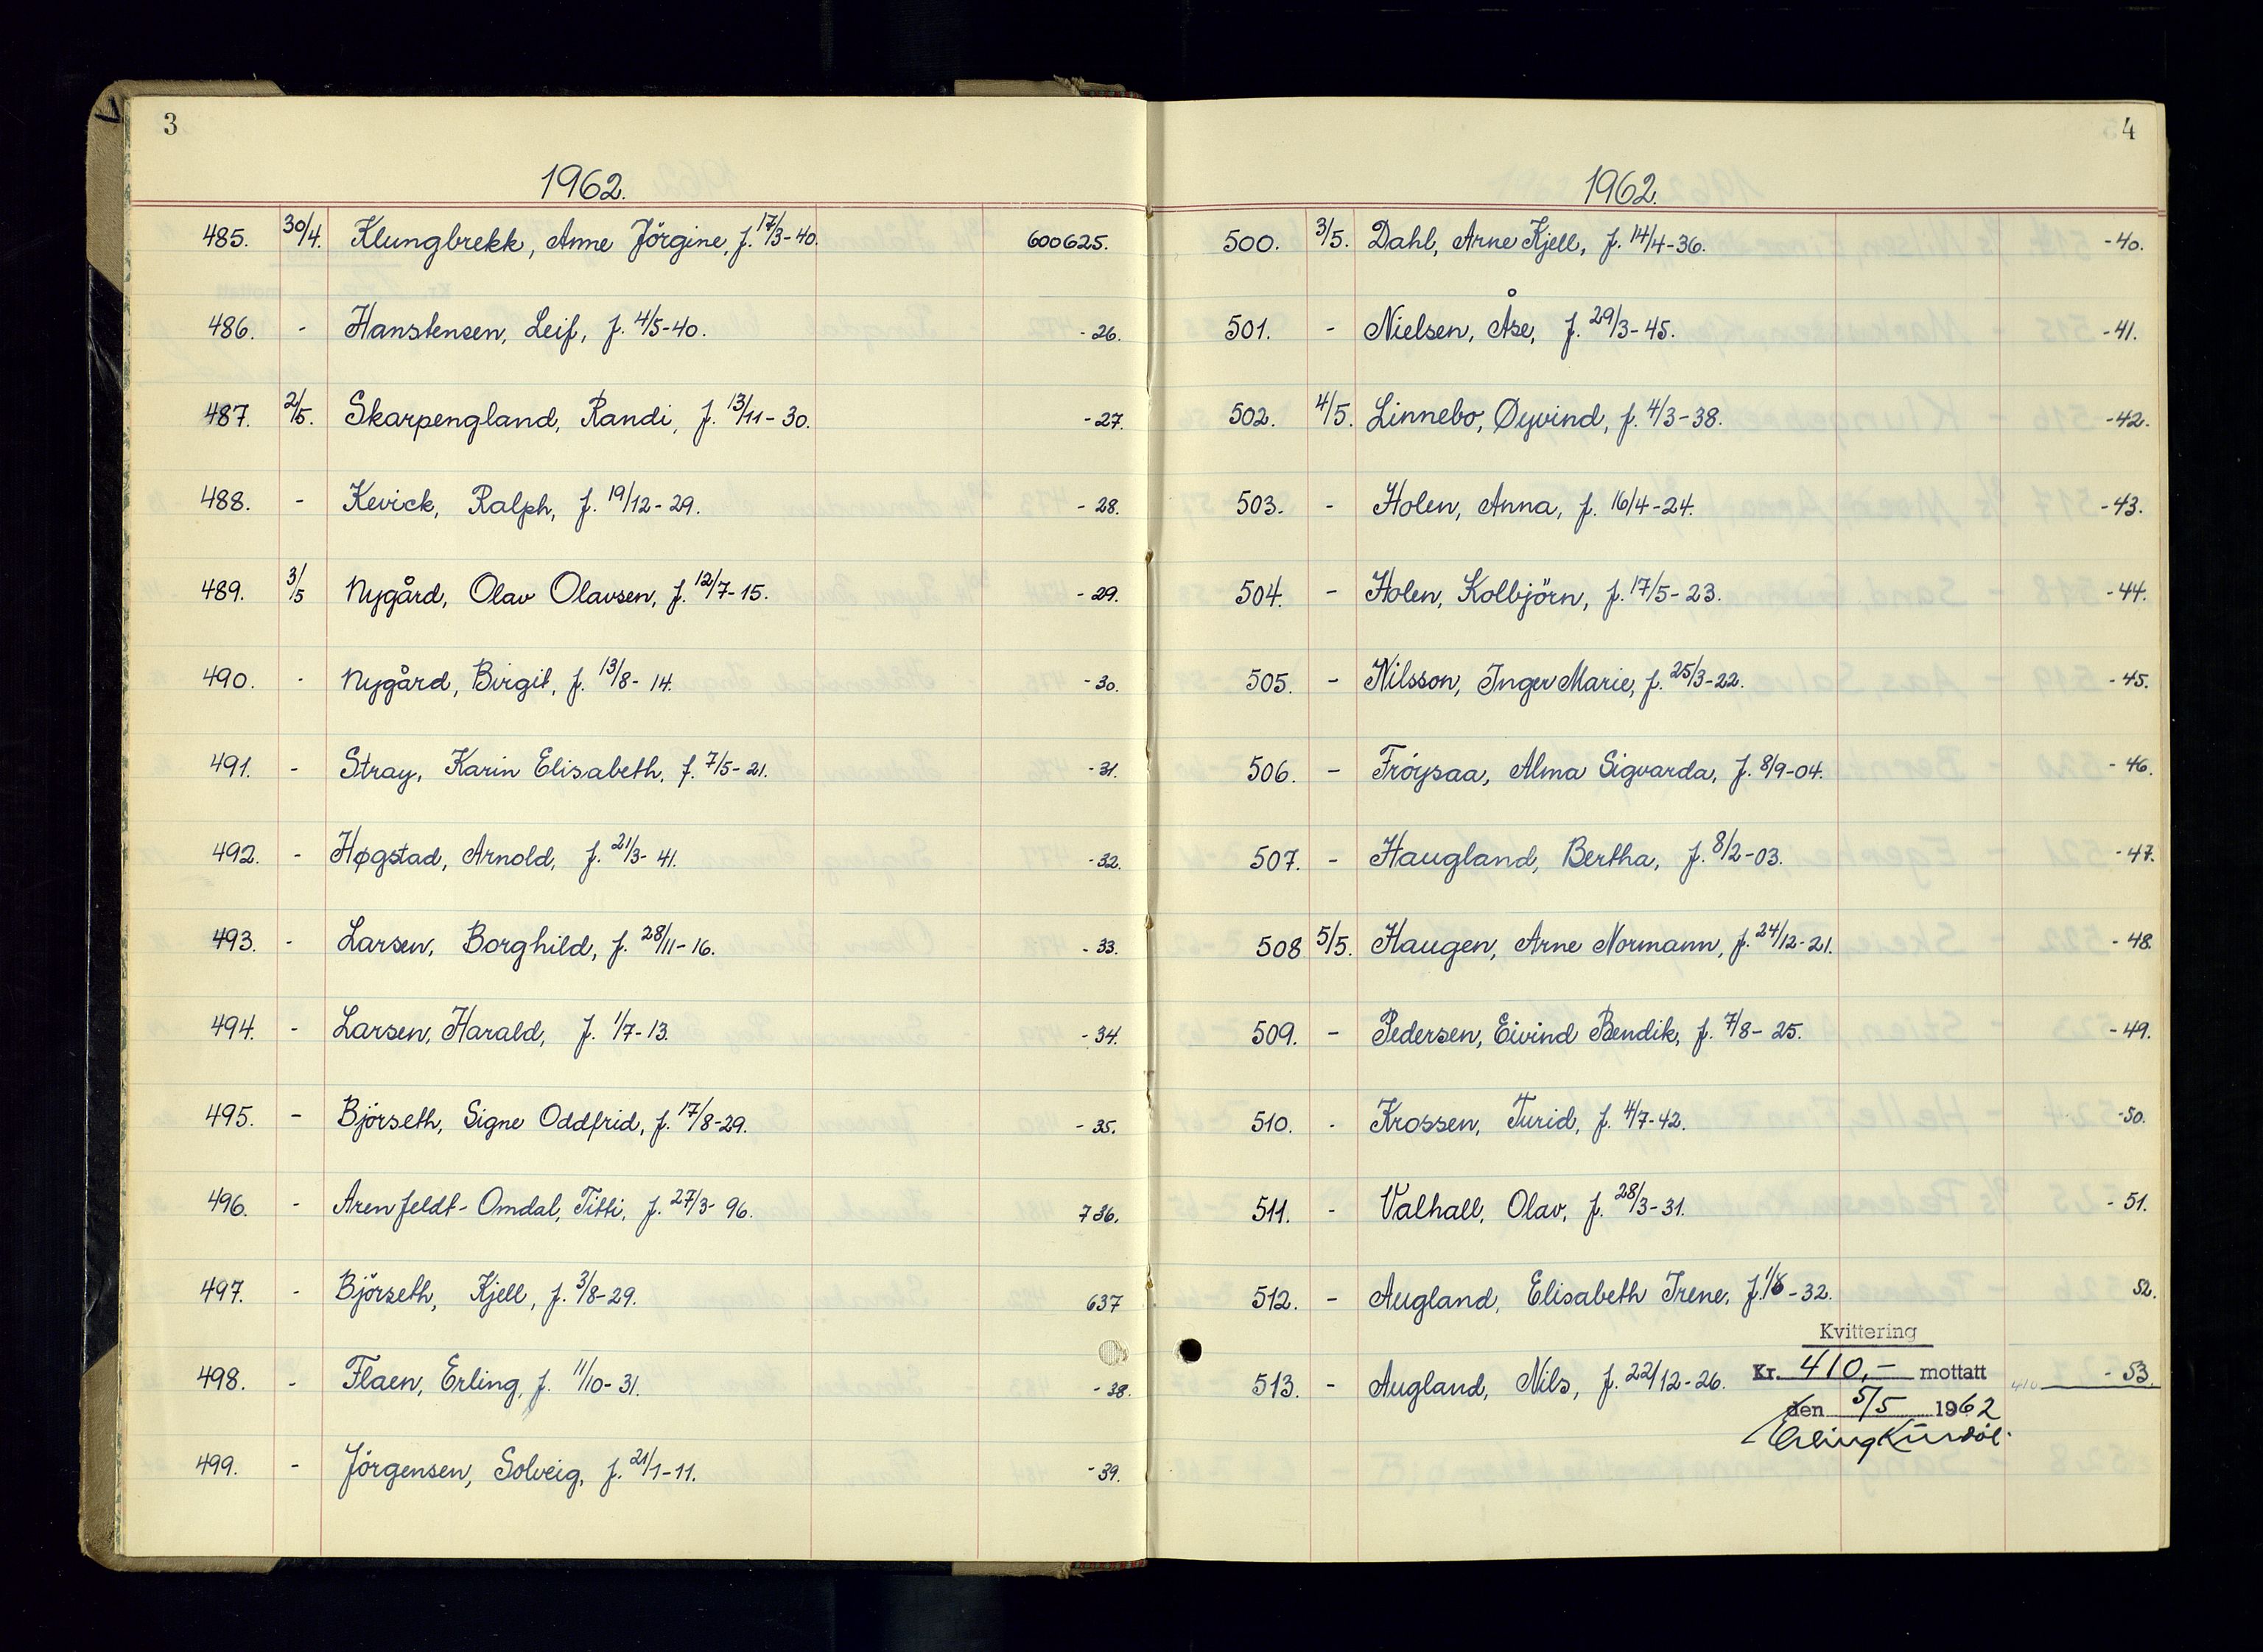 3
1962.
485. 30/4. Klungbrekk, Anne Jörgine, f. 17/3-40. 600625.
486. - Hanstensen, Leif, f. 4/5-40. - 26.
487. 2/5. Skarpengland, Randi, f. 13/11-30. - 27.
488. - Kevick, Ralph, f. 19/12-29. - 28.
489. 3/5 Nygård, Olav Olavsen, f. 12/7-15. - 29.
490. - Nygård, Birgit, f. 13/8-14. - 30.
491. - Stray, Karin Elisabeth, f. 7/5-21. - 31.
492. - Høgstad, Arnold, f. 21/3-41. - 32.
493. - Larsen, Borghild, f. 28/11-16. - 33.
494. - Larsen, Harald, f. 1/7-13. - 34.
495. - Björseth, Signe Oddfrid, f. 17/8-29. - 35.
496. - Arenfeldt-Omdal, Titti, f. 27/3-96. 736.
497. - Björseth, Kjell, f. 3/8-29. 637
498. - Flaen, Erling, f. 11/10-31. - 38.
499. - Jörgensen, Solveig, f. 21/1-11. - 39.
4
1962.
500. 3/5. Dahl, Arne Kjell, f. 14/4-36. - 40.
501. - Nielsen, Åse, f. 29/3-45. - 41.
502. 4/5. Linnebo, Øyvind, f. 4/3-38. - 42.
503. - Holen, Anna, f. 16/4-24. - 43.
504. - Holen, Kolbjörn, f. 17/5-23. - 44.
505. - Nilsson, Inger Marie, f. 25/3-22. - 45.
506. - Fröysaa, Alma Sigvarda, f. 8/9-04. - 46.
507. - Haugland, Bertha, f. 8/2-03. - 47.
508 5/5. Haugen, Arne Normann, f. 24/12-21. - 48.
509. - Pedersen, Eivind Bendik, f. 7/8-25. - 49.
510. - Krossen, Turid, f. 4/7-42. - 50.
511. - Valhall, Olav, f. 28/3-31. - 51.
512. - Augland, Elisabeth Irene, f. 1/8-32. 52.
513. - Augland, Nils, f. 22/12-26. 410 - 53.
Kvittering
Kr. 410,- mottatt
den 5/5 1962
Erling